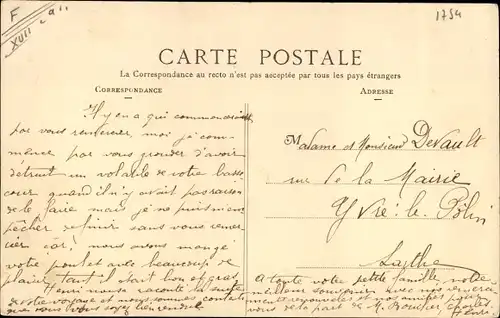 F
XVII
1754
CARTE POSTALE
La Correspondance au recto n'est pas acceptée par tous les pays étrangers
CORRESPONDANCE
ADRESSE
Il y en a qui commencerait
par vous remercier, moi je com-
mence par vous gronder d'avoir
détruit un volatile de votre basse
cour quand il n'y avait pas raison
de le faire mais je ne puis m'em
pêcher de finir sans vous remer
cier car nous avons mangé
votre poulet avec beaucoup de
plaisir tant il était bon et gras,
Henri nous a raconté la suite
de votre voyage et nous sommes contents
que vous vous soyez bien rendue
Madame et Monsieur Devault
rue de la Mairie
Yvré-le-Pôlin
Sarthe
A toute votre petite famille, notre
meilleur souvenir avec nos remercie
ments renouvelés et nos amitiés pour
vous de la part de M. Bouclier Charles
Henri